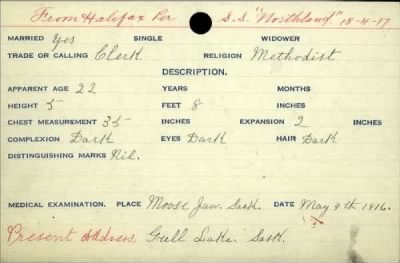 From Halifax Per S.S. "Northland" 18-4-17
MARRIED Yes SINGLE WIDOWER
TRADE OR CALLING Clerk RELIGION Methodist
DESCRIPTION.
APPARENT AGE 22 YEARS MONTHS
HEIGHT 5 FEET 8 INCHES
CHEST MEASUREMENT 35 INCHES EXPANSION 2 INCHES
COMPLEXION Dark EYES Dark HAIR Dark
DISTINGUISHING MARKS Nil.
MEDICAL EXAMINATION. PLACE Moose Jaw. Sask. DATE May 9th 1916.
Present Address, Gull Lake. Sask.